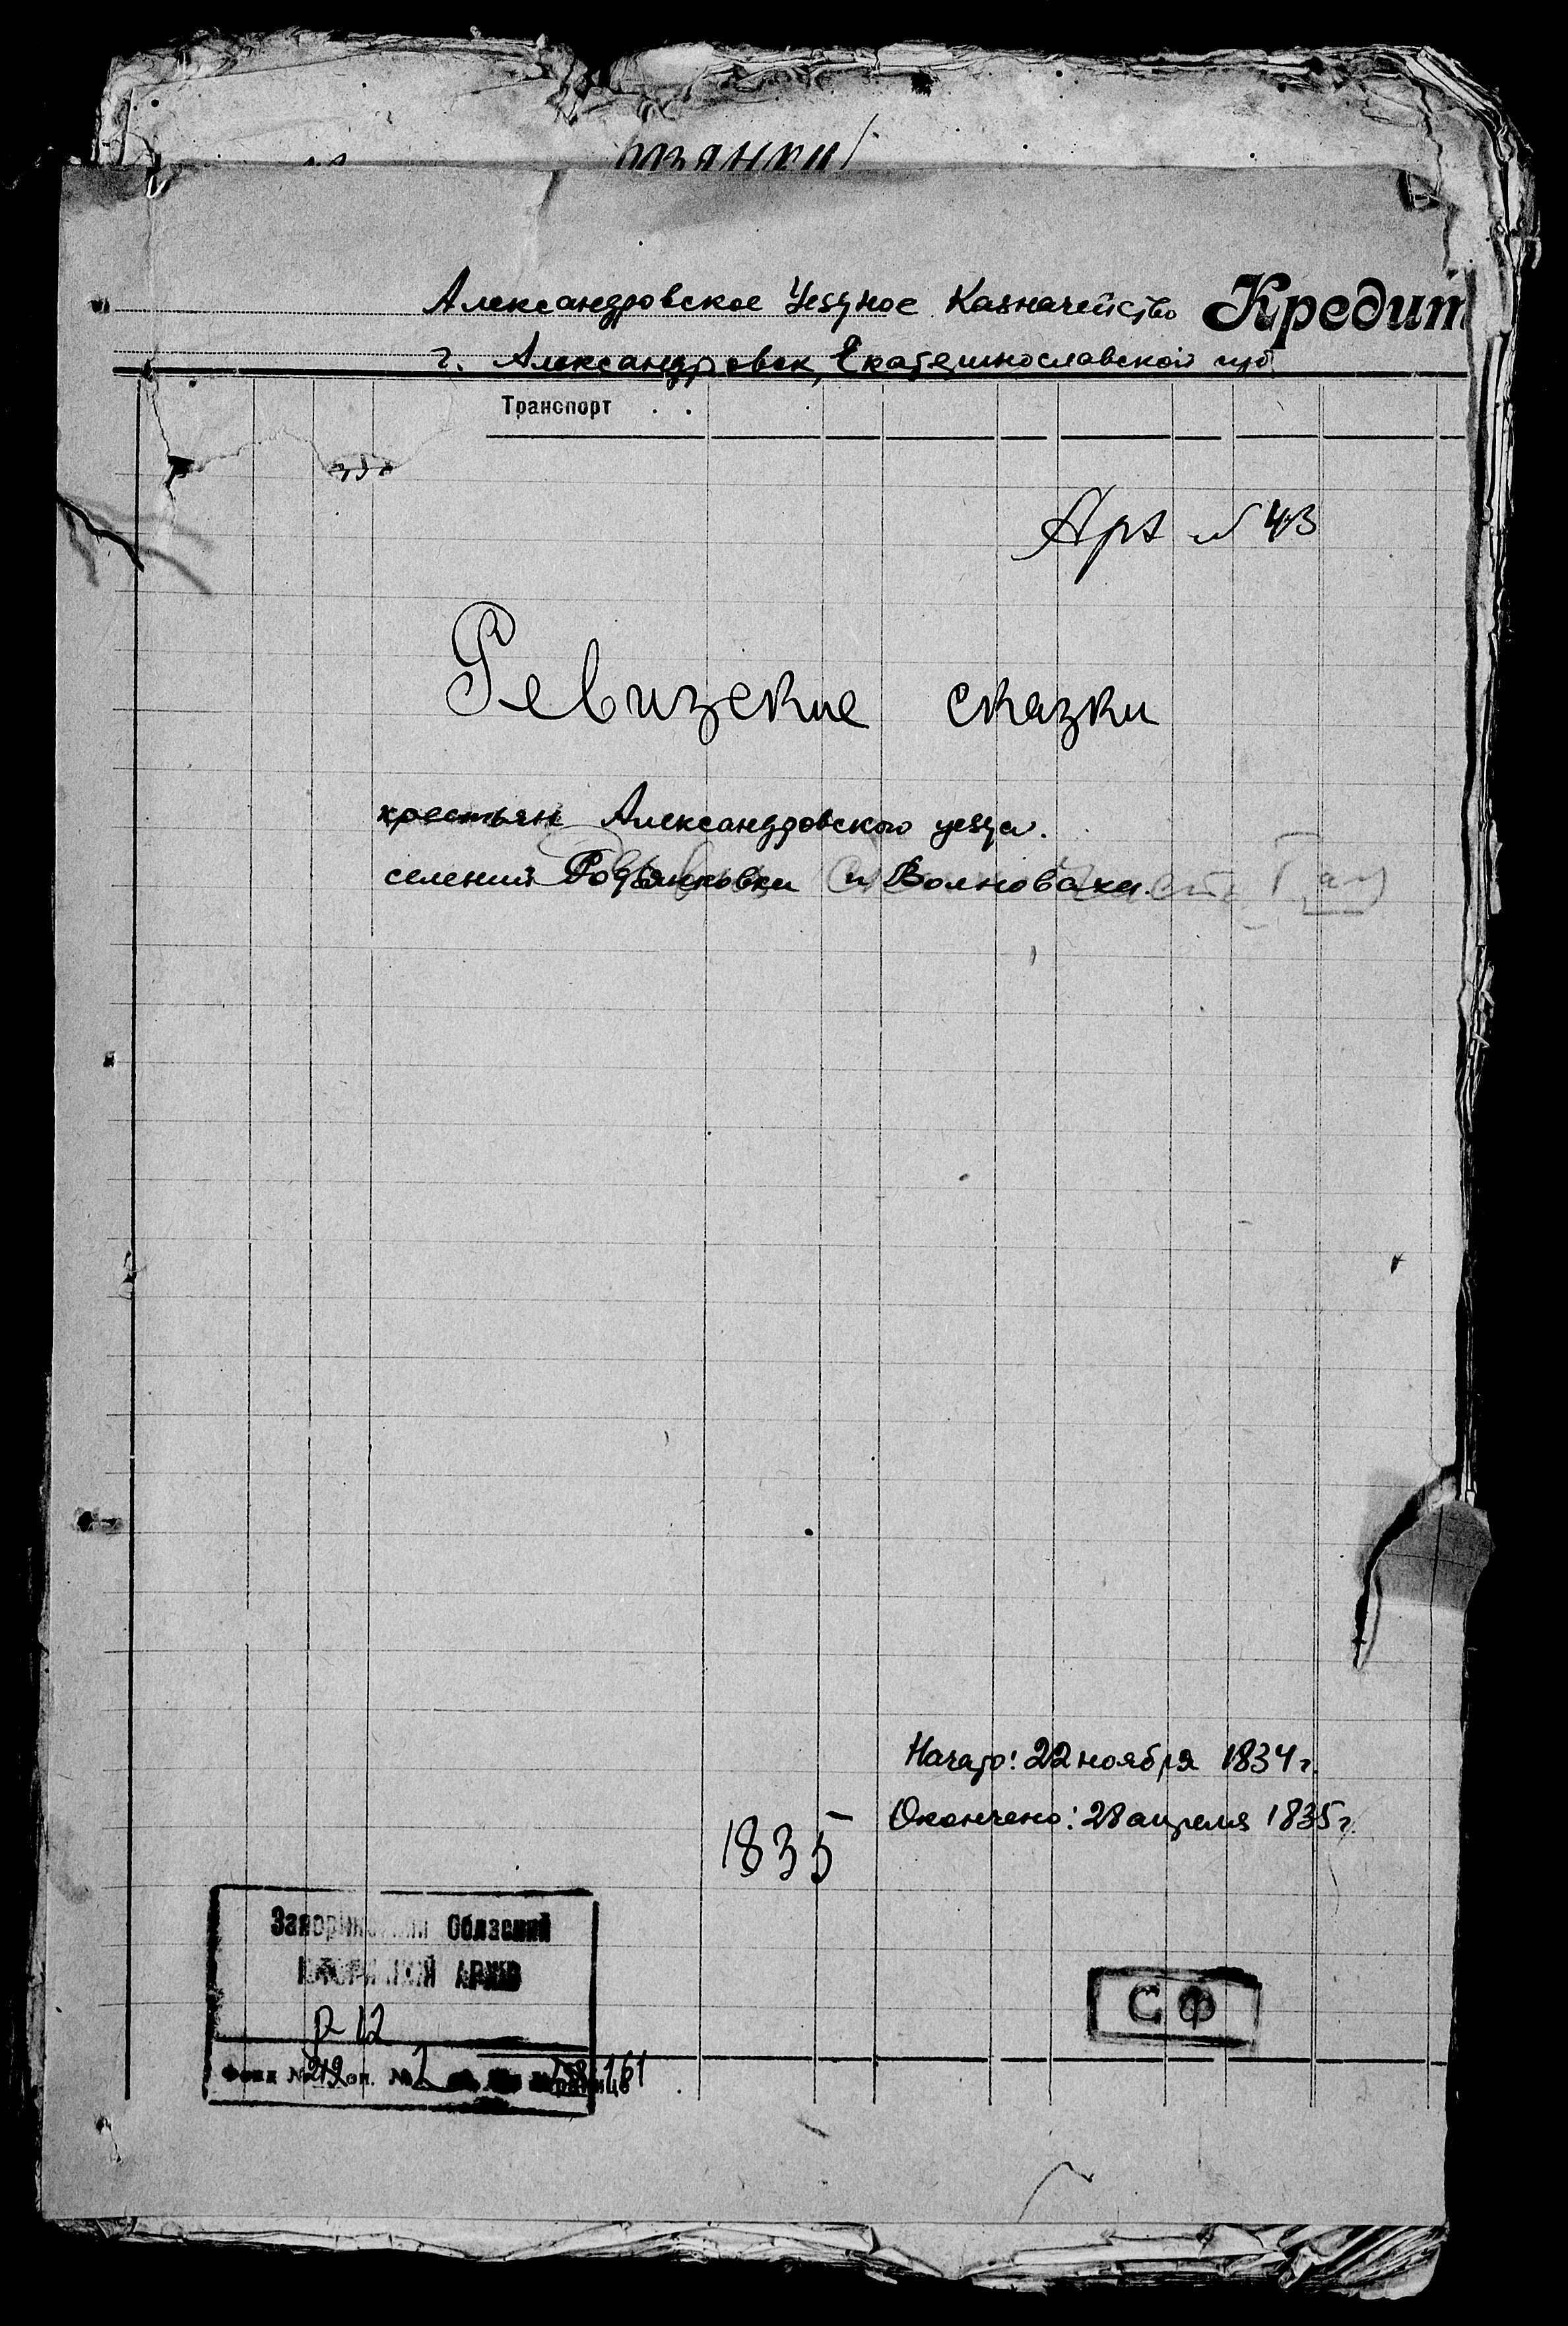 Александровское Уездное Казначейство Кредит
г. Александровск, Екатеринославской губ.
Транспорт . .
Арх № 43
Ревизские сказки
крестьян Александровского уезда.
селений Родзянковки и Волновахи.
Начато: 22 ноября 1834 г.
Окончено: 28 апреля 1835 г.
1835
Обласний
АРХІВ
Р-12
СФ
Фонд № 219 оп. № 1 161